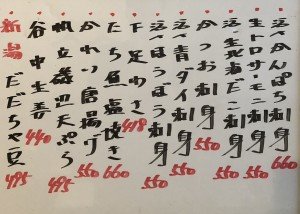 かんぱち刺身 660
生トロサーモン刺身 550
刺身 550
かつお刺身 550
青ダイ刺身 550
ほうぼう刺身 550
下足わさ 418
たち魚塩焼き 660
かれい唐揚げ 550
帆立磯辺天ぷら 495
谷中生姜 440
新潟 だだちゃ豆 495